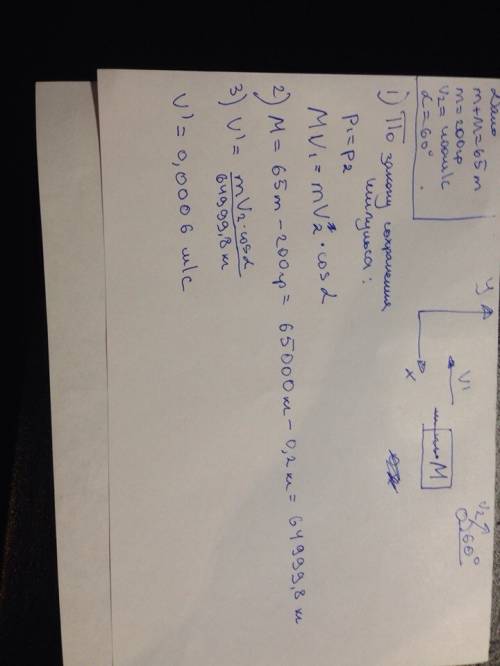 Дано
m+M=65т
m=200гр
V₂=400м/с
α=60°
y
x
V₁
M
V₂
60°
1) По закону сохранения
импульса:
P₁=P₂
MV₁ = mV₂ · cosα
2) M = 65т - 200гр = 65000кг - 0,2кг = 64999,8 кг
3) V' = mV₂·cosα / 64999,8 кг
V' = 0,0006 м/с